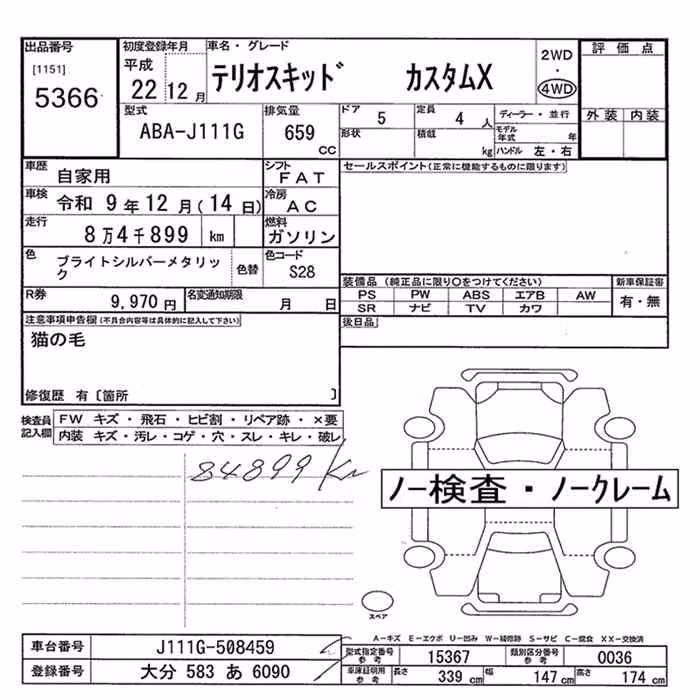 出品番号 初度登録年月 車名・グレード 2WD 評価点
[1151] 平成 ・
5366 22 12月 テリオスキッド カスタムX 4WD
型式 排気量 ドア 5 定員 4 人 ディーラー・並行 外装 内装
ABA-J111G 659 CC 形状 積載 kg モデル年式 年
ハンドル 左・右
車歴 自家用 シフト FAT セールスポイント(正常に機能するものに限ります)
車検 令和 9年12月(14日) 冷房 AC
走行 8万4千899 km 燃料 ガソリン
色 ブライトシルバーメタリック 色替 色コード S28
装備品 (純正品に限り○をつけてください) 新車保証書
PS PW ABS エアB AW 有・無
SR ナビ TV カワ
R券 9,970円 名変通知期限 月 日
後日品
注意事項申告欄(不具合内容等は具体的に記入して下さい)
猫の毛
修復歴 有〔箇所 〕
検査員記入欄 FW キズ・飛石・ヒビ割・リペア跡・×要
内装 キズ・汚レ・コゲ・穴・スレ・キレ・破レ
84899 Km
ノー検査・ノークレーム
スペア
A-キズ E-エクボ U-凹み W-補修跡 S-サビ C-腐食 XX-交換済
車台番号 J111G-508459
登録番号 大分 583 あ 6090
型式指定番号 参考 15367 類別区分番号 参考 0036
車庫証明用 参考 長さ 339 cm 幅 147 cm 高さ 174 cm